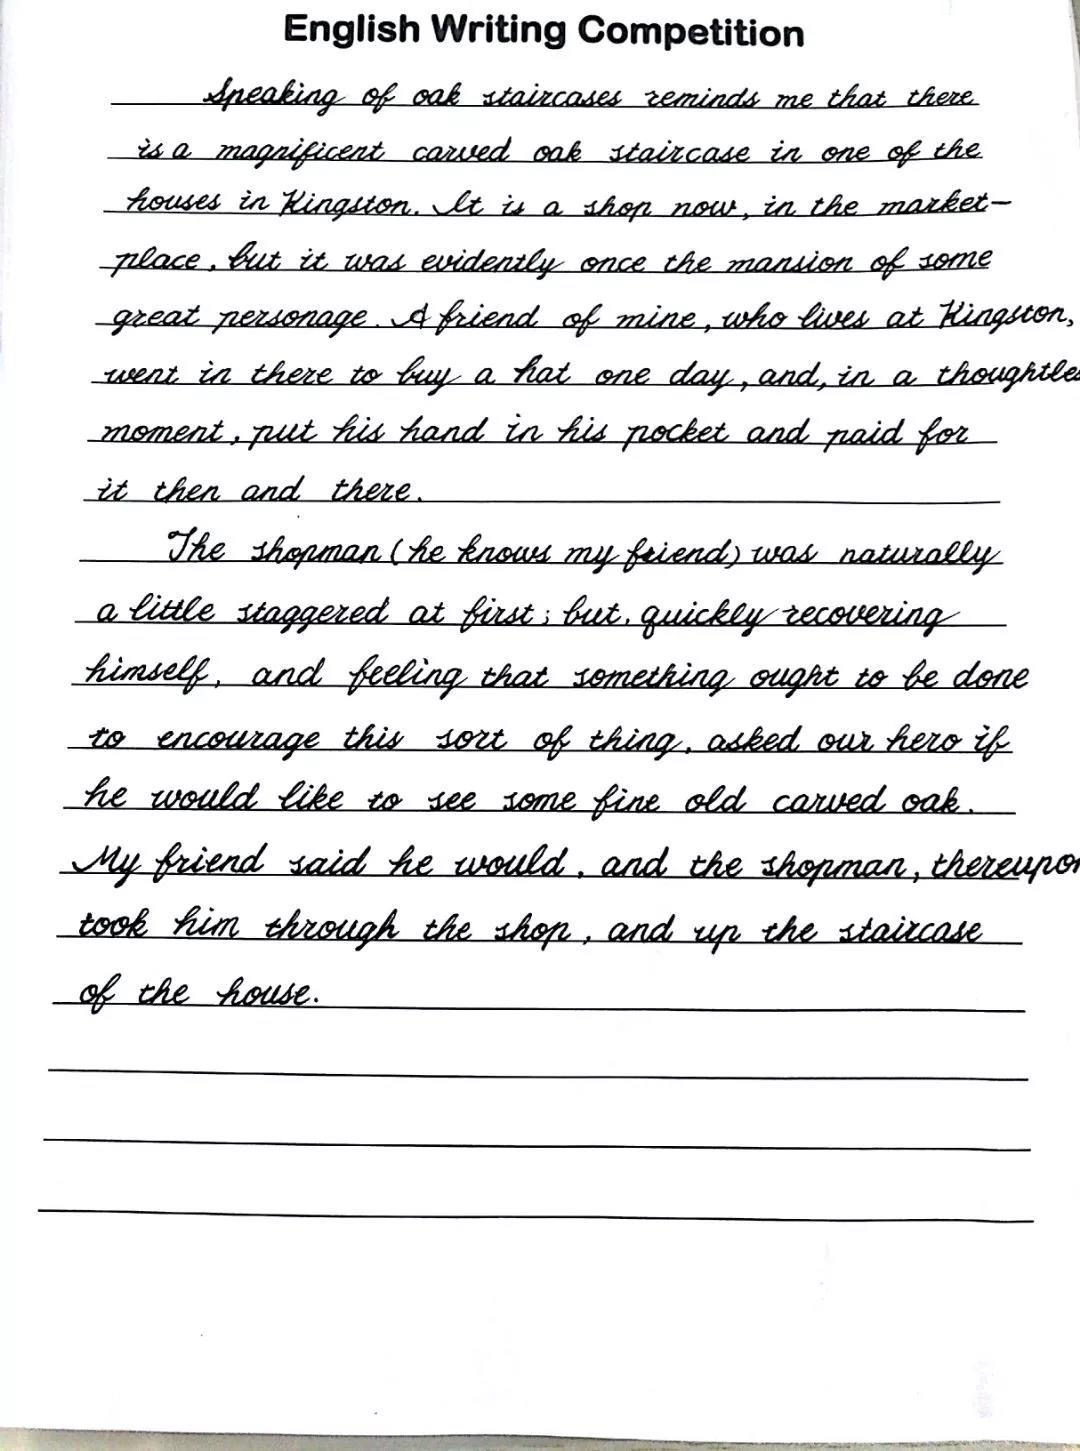 English Writing Competition
Speaking of oak staircases reminds me that there
is a magnificent carved oak staircase in one of the
houses in Kingston. It is a shop now, in the market-
place, but it was evidently once the mansion of some
great personage. A friend of mine, who lives at Kingston,
went in there to buy a hat one day, and, in a thoughtles
moment, put his hand in his pocket and paid for
it then and there.
The shopman (he knows my friend) was naturally
a little staggered at first; but, quickly recovering
himself, and feeling that something ought to be done
to encourage this sort of thing, asked our hero if
he would like to see some fine old carved oak.
My friend said he would, and the shopman, thereupon
took him through the shop, and up the staircase
of the house.